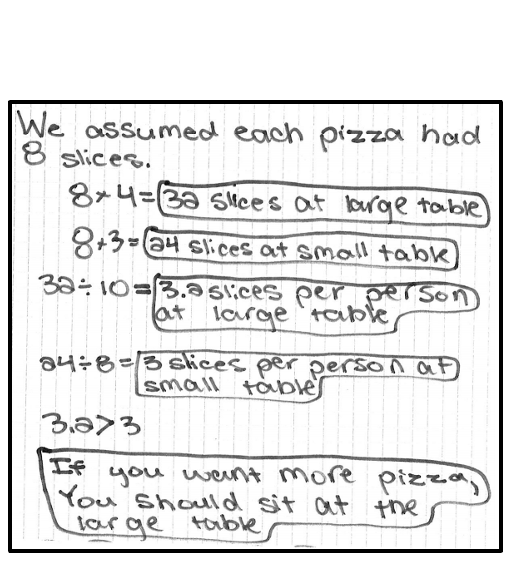 We assumed each pizza had
8 slices.
8×4=32 slices at large table
8×3=24 slices at small table
32÷10=3.2 slices per person
at large table
24÷8=3 slices per person at
small table
3.2>3
If you want more pizza,
You should sit at the
large table